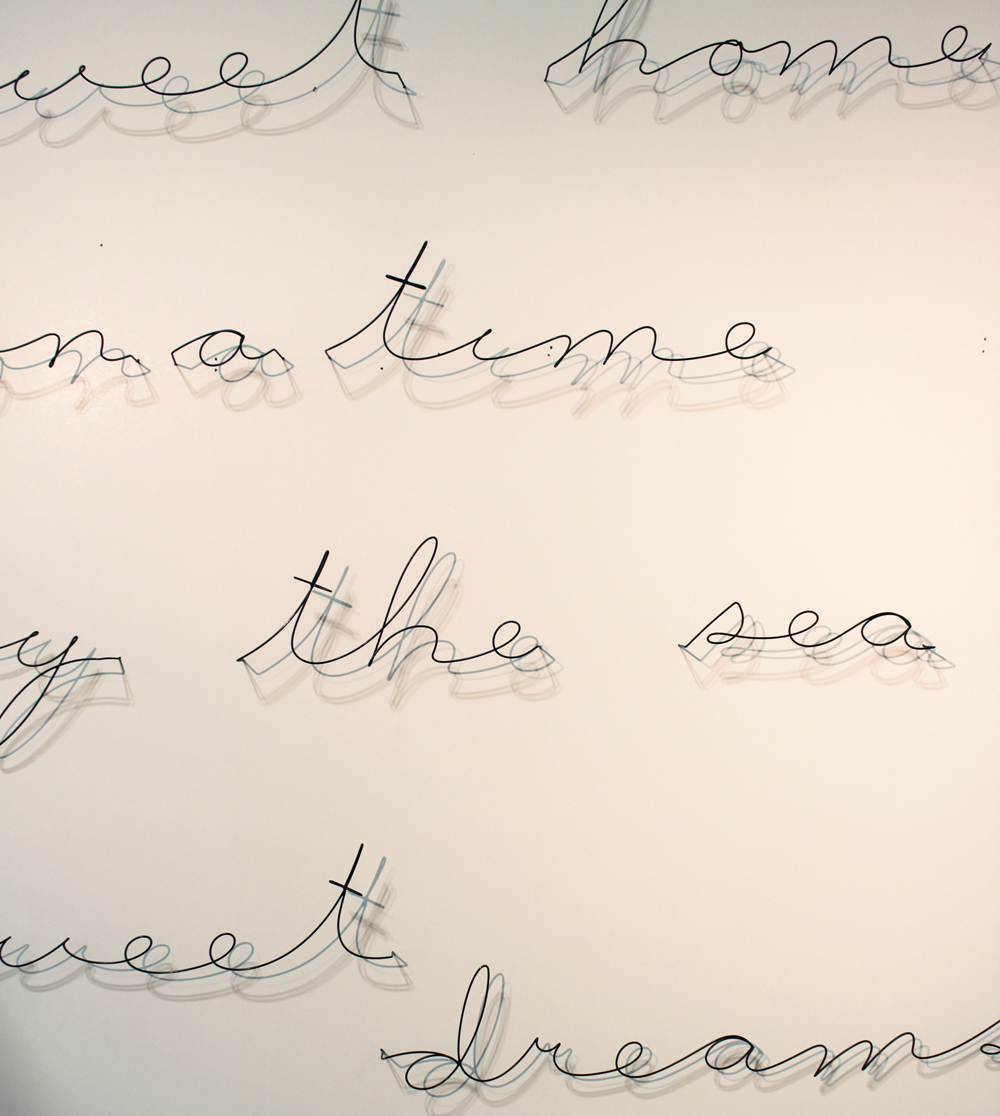 weet home
n a time
y the sea
weet
dreams